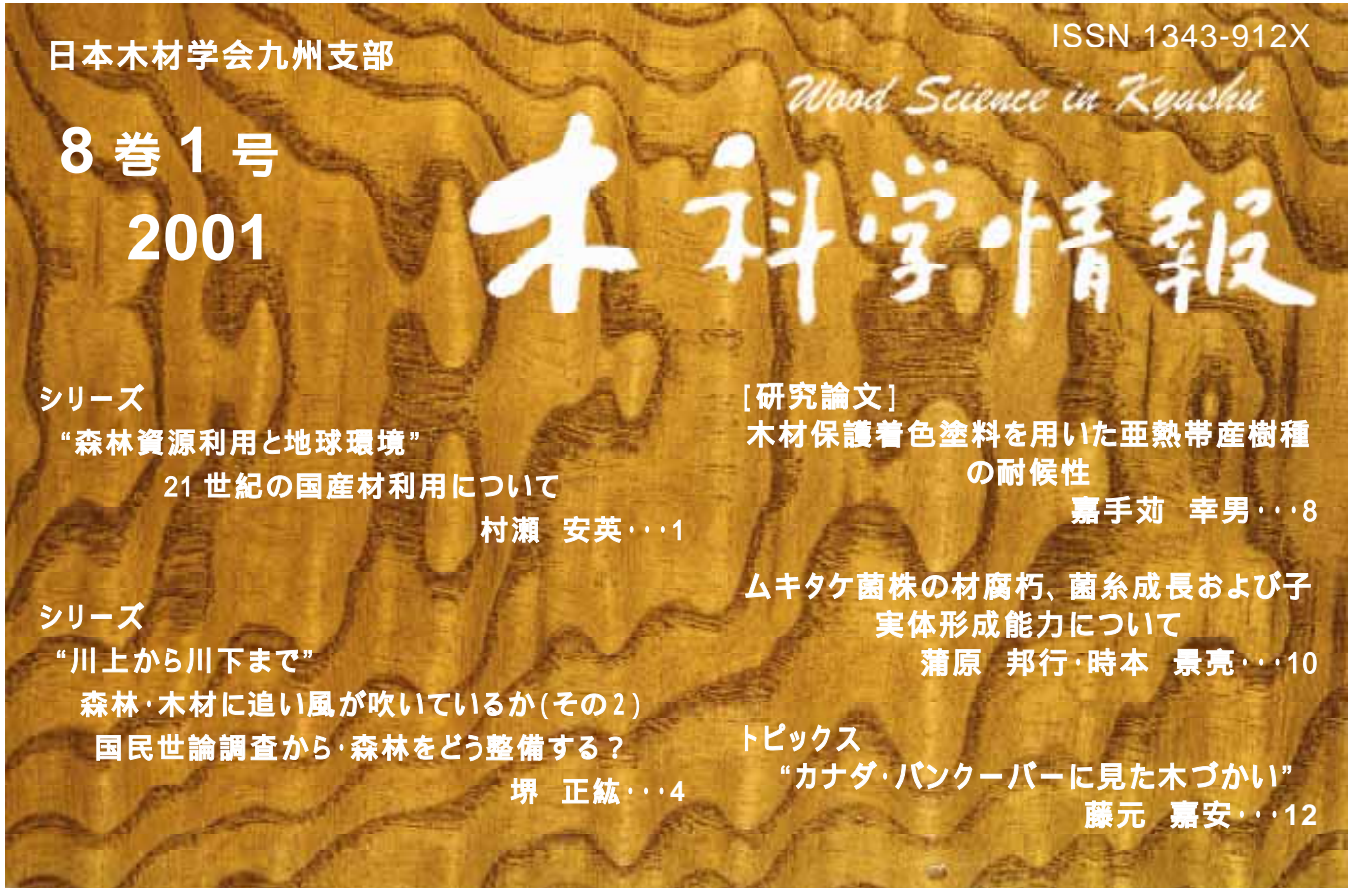 日本木材学会九州支部
ISSN 1343-912X
Wood Science in Kyushu
8 巻 1 号
2001
木科学情報
シリーズ
“森林資源利用と地球環境”
21 世紀の国産材利用について
村瀬 安英･･･1
シリーズ
“川上から川下まで”
森林･木材に追い風が吹いているか(その2)
国民世論調査から･森林をどう整備する？
堺 正紘･･･4
[研究論文]
木材保護着色塗料を用いた亜熱帯産樹種
の耐候性
嘉手苅 幸男･･･8
ムキタケ菌株の材腐朽、菌糸成長および子
実体形成能力について
蒲原 邦行･時本 景亮･･･10
トピックス
“カナダ･バンクーバーに見た木づかい”
藤元 嘉安･･･12